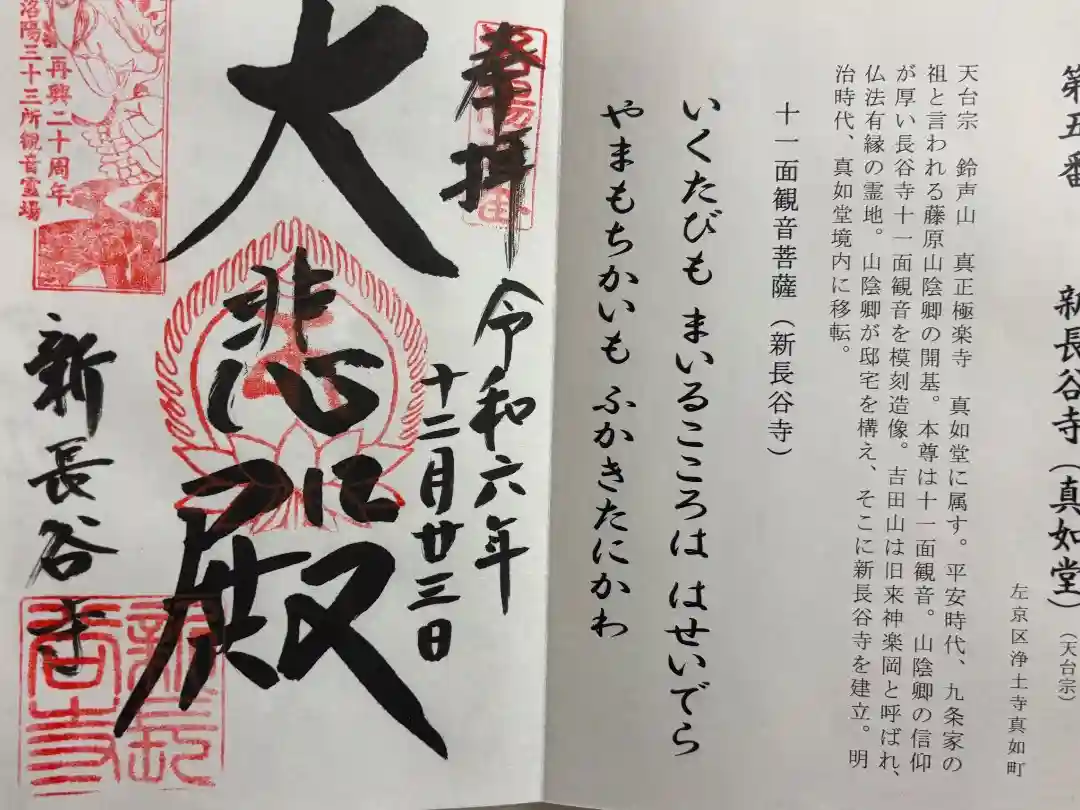 第五番 新長谷寺(真如堂)(天台宗)
左京区浄土寺真如町
天台宗 鈴声山 真正極楽寺 真如堂に属す。平安時代、九条家の
祖と言われる藤原山陰卿の開基。本尊は十一面観音。山陰卿の信仰
が厚い長谷寺十一面観音を模刻造像。吉田山は旧来神楽岡と呼ばれ、
仏法有縁の霊地。山陰卿が邸宅を構え、そこに新長谷寺を建立。明
治時代、真如堂境内に移転。
十一面観音菩薩(新長谷寺)
いくたびも まいるこころは はせいでら
やまもちかいも ふかきたにかわ
奉拝
令和六年
十二月廿三日
大悲殿
新長谷寺
再興二十周年
洛陽三十三所観音霊場